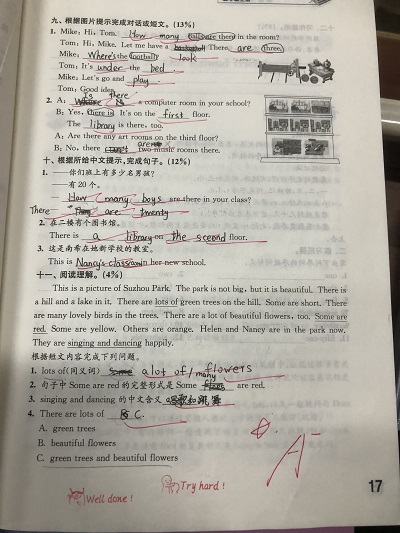 九、根据图片提示完成对话或短文。(13%)
1. Mike: Hi, Tom. How many balls are there in the room?
Tom: Hi, Mike. Let me have a look There are three.
Mike: Where's the football?
Tom: It's under the bed
Mike: Let's go and play
Tom: Good idea.
2. A: Is there a computer room in your school?
B: Yes, there is It's on the first floor.
The library is there, too.
A: Are there any art rooms on the third floor?
B: No, there are two music rooms there.
十、根据所给中文提示,完成句子。(12%)
1. ——你们班上有多少名男孩?
——有20个。
— How many boys are there in your class?
There are twenty
2. 在二楼有个图书馆。
There is a library on the second floor.
3. 这是南希在她新学校的教室。
This is Nancy's classroom in her new school.
十一、阅读理解。(4%)
This is a picture of Suzhou Park. The park is not big, but it is beautiful. There is
a hill and a lake in it. There are lots of green trees on the hill. Some are short. There
are many lovely birds in the trees. There are a lot of beautiful flowers, too. Some are
red. Some are yellow. Others are orange. Helen and Nancy are in the park now.
They are singing and dancing happily.
根据短文内容完成下列问题。
1. lots of(同义词) a lot of / many
2. 句子中 Some are red 的完整形式是 Some flowers are red.
3. singing and dancing 的中文含义 唱歌和跳舞
4. There are lots of C.
A. green trees
B. beautiful flowers
C. green trees and beautiful flowers
A-
Well done!
Try hard!
17